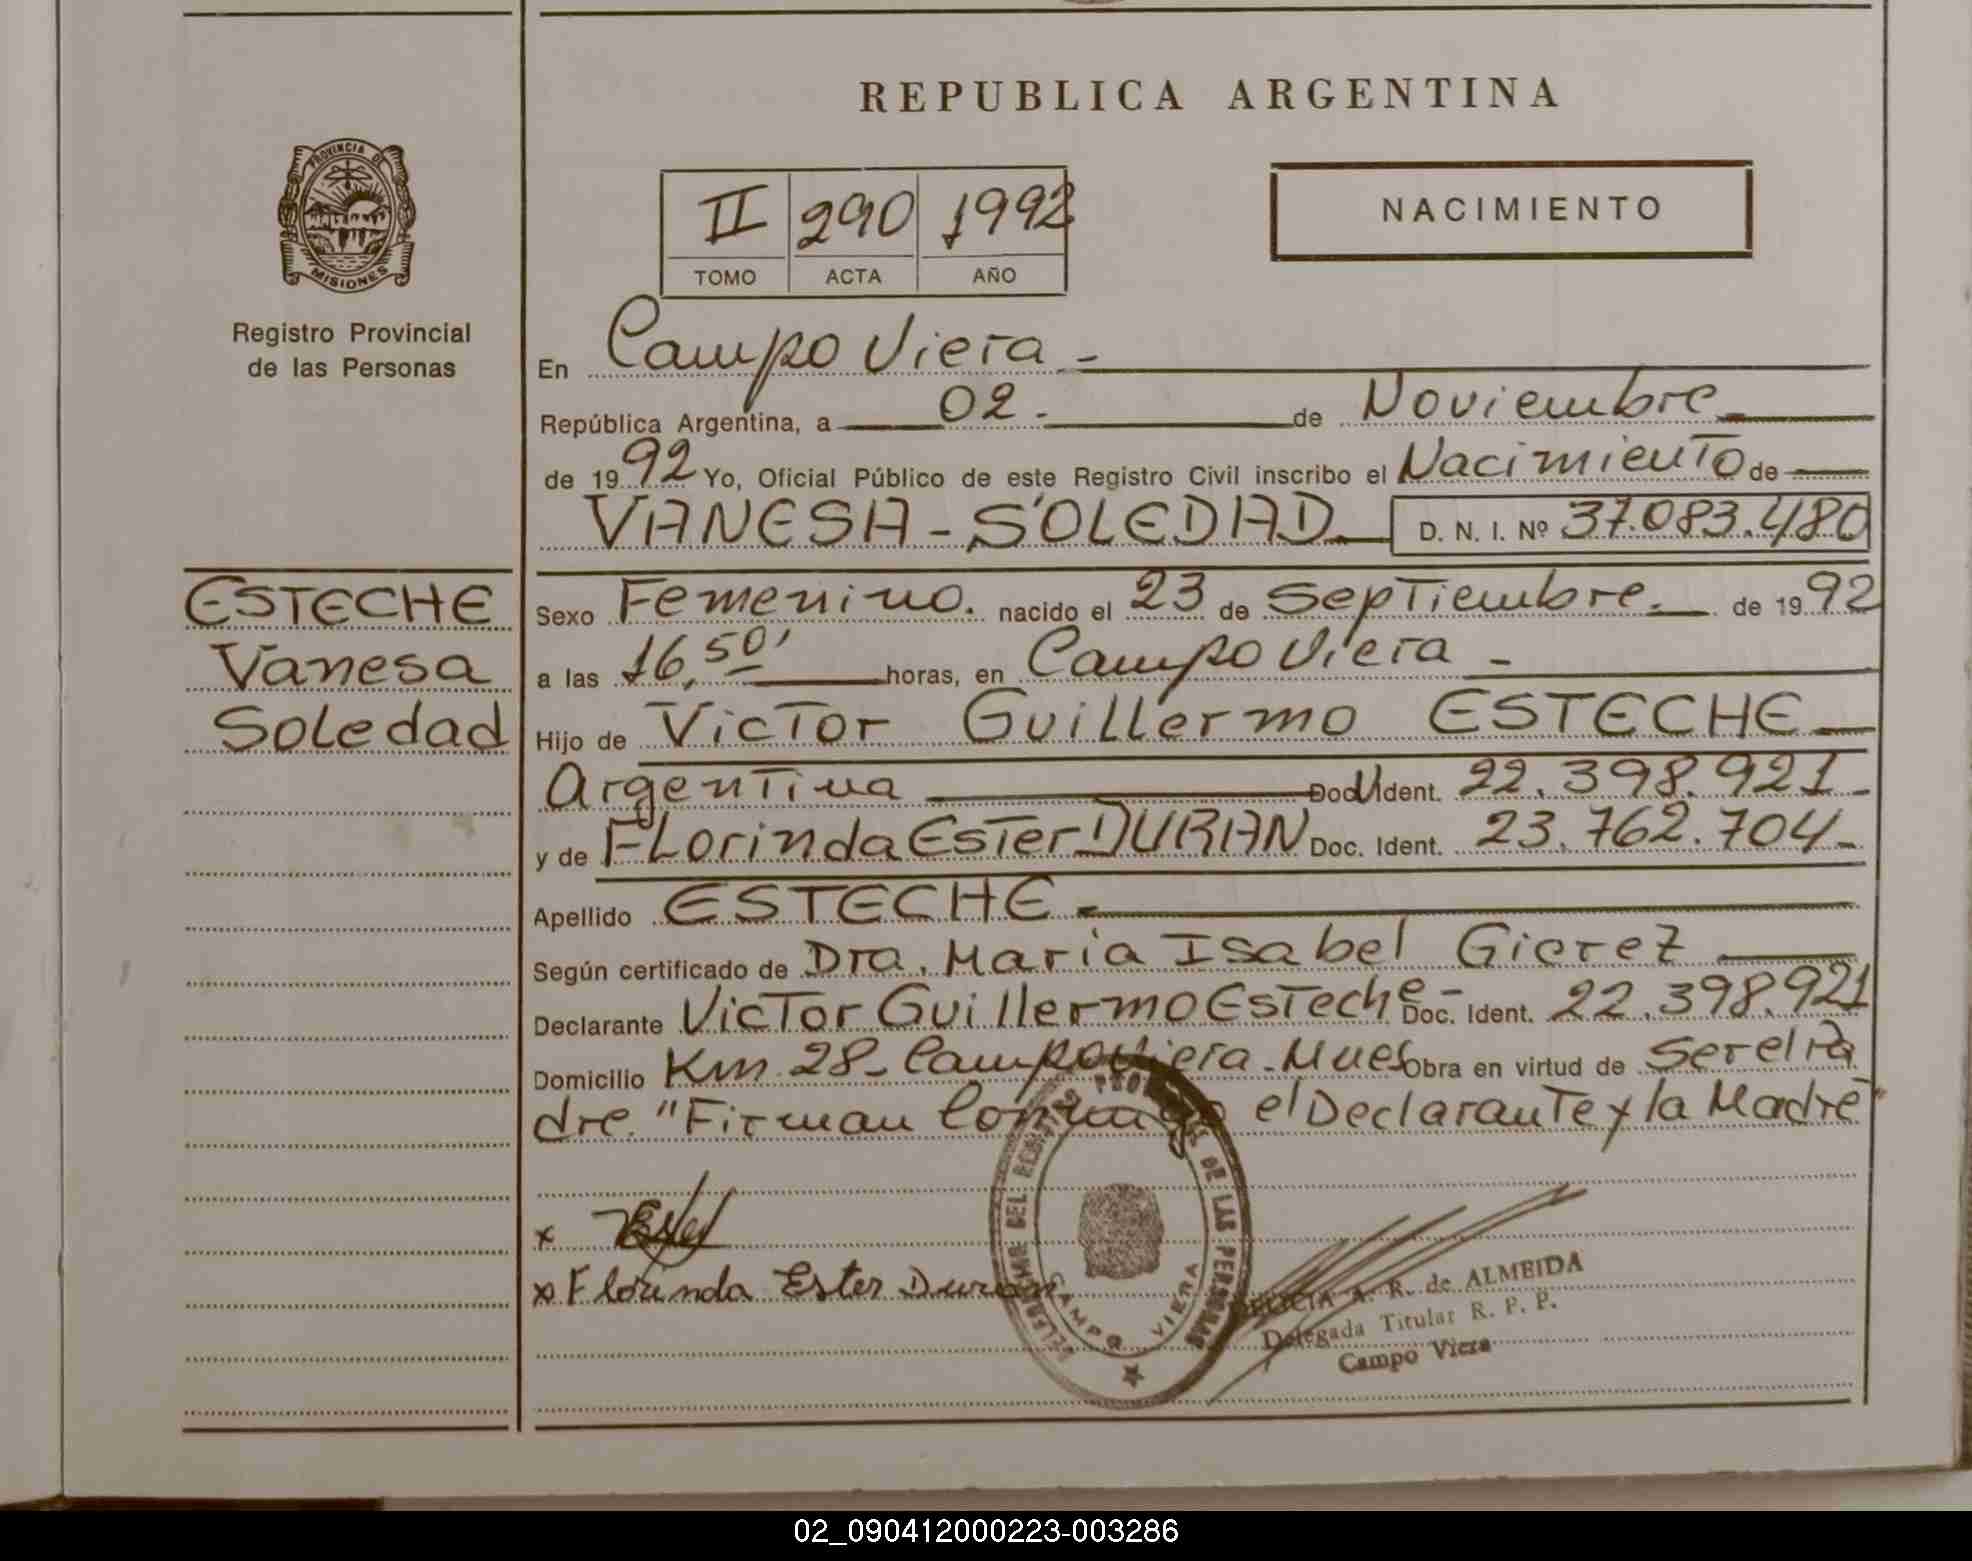 REPUBLICA ARGENTINA
PROVINCIA DE
MISIONES
Registro Provincial
de las Personas
II 290 1992
TOMO ACTA AÑO
NACIMIENTO
En Campo Viera -
República Argentina, a 02. de Noviembre
de 1992 Yo, Oficial Público de este Registro Civil inscribo el Nacimiento de
VANESA - SOLEDAD D. N. I. Nº 37.083.480
ESTECHE
Vanesa
Soledad
Sexo Femenino. nacido el 23 de Septiembre. de 1992
a las 16,50' horas, en Campo Viera -
Hijo de Victor Guillermo ESTECHE
Argentina Doc. Ident. 22.398.921-
y de Florinda Ester DURAN Doc. Ident. 23.762.704-
Apellido ESTECHE-
Según certificado de Dra. Maria Isabel Gierez
Declarante Victor Guillermo Esteche- Doc. Ident. 22.398.921
Domicilio Km 28- Campo Viera - Mnes Obra en virtud de Ser el Pa
dre. "Firman Conmigo el Declarante y la Madre"
x
x Florinda Ester Duran
DEL REGISTRO PROVINCIAL DE LAS PERSONAS
CAMPO VIERA
A. R. de ALMEIDA
Delegada Titular R. P. P.
Campo Viera
02_090412000223-003286